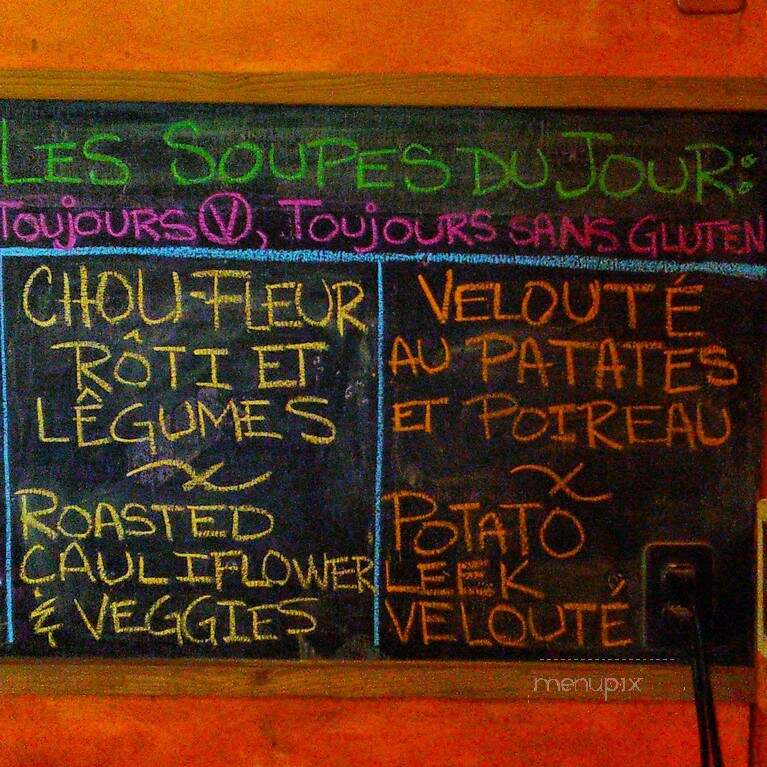 LES SOUPES DU JOUR:
TOUJOURS Ⓥ, TOUJOURS SANS GLUTEN
CHOU-FLEUR
RÔTI ET
LÊGUMES
ROASTED
CAULIFLOWER
& VEGGIES
VELOUTÉ
AU PATATES
ET POIREAU
POTATO
LEEK
VELOUTÉ
menupix